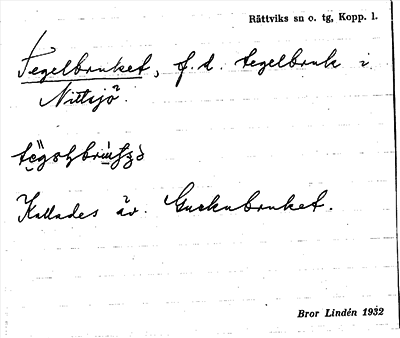 Rättviks sn o. tg, Kopp. l.
Tegelbruket, f.d. tegelbruk i
Nittsjö.
Kallades äv. Gurkubruket.
Bror Lindén 1932